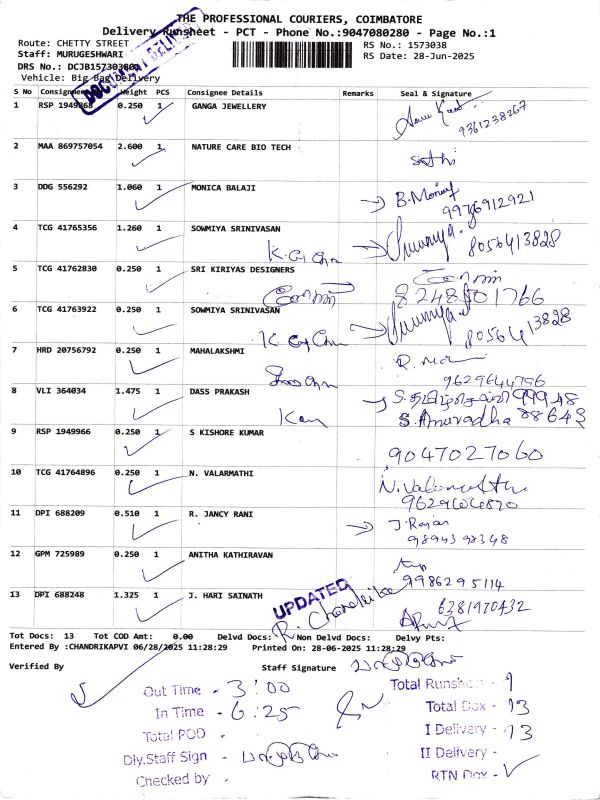 THE PROFESSIONAL COURIERS, COIMBATORE
Delivery Runsheet - PCT - Phone No.:9047080280 - Page No.:1
Route: CHETTY STREET
RS No.: 1573038
Staff: MURUGESHWARI
RS Date: 28-Jun-2025
DRS No.: DCJB15730380
Vehicle: Big Bag Delivery
DOCUMENT DELIVERED
S No Consignment Weight PCS Consignee Details Remarks Seal & Signature
1 RSP 1949968 0.250 1 GANGA JEWELLERY
9361238267
2 MAA 869757054 2.600 1 NATURE CARE BIO TECH
3 DDG 556292 1.060 1 MONICA BALAJI
9976912921
4 TCG 41765356 1.260 1 SOWMIYA SRINIVASAN
8056413828
5 TCG 41762830 0.250 1 SRI KIRIYAS DESIGNERS
6 TCG 41763922 0.250 1 SOWMIYA SRINIVASAN
8056413828
7 HRD 20756792 0.250 1 MAHALAKSHMI
8 VLI 364034 1.475 1 DASS PRAKASH
S. தமிழ்செல்வி 99948
S. Anuradha 88643
9 RSP 1949966 0.250 1 S KISHORE KUMAR
9047027060
10 TCG 41764896 0.250 1 N. VALARMATHI
N. Valarmathi
11 DPI 688209 0.510 1 R. JANCY RANI
J. Rajan
9894398348
12 GPM 725989 0.250 1 ANITHA KATHIRAVAN
9986295114
13 DPI 688248 1.325 1 J. HARI SAINATH
6281970432
UPDATED
R. Chandrika
Tot Docs: 13 Tot COD Amt: 0.00 Delvd Docs: Non Delvd Docs: Delvy Pts:
Entered By :CHANDRIKAPVI 06/28/2025 11:28:29 Printed On: 28-06-2025 11:28:29
Verified By Staff Signature
Out Time - 3:00
Total Runsheet - 1
In Time - 6:25
Total Dox - 13
Total POD -
I Delivery - 13
Dly.Staff Sign -
II Delivery -
Checked by -
RTN Dox -